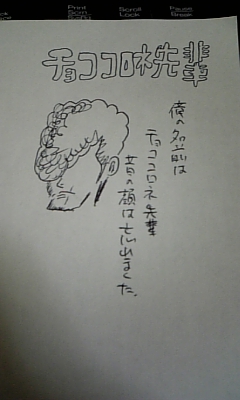 Print
Scrn
Scroll
Lock
Pause
Break
チョココロネ先輩
俺の名前は
チョココロネ先輩
昔の顔は忘れました。